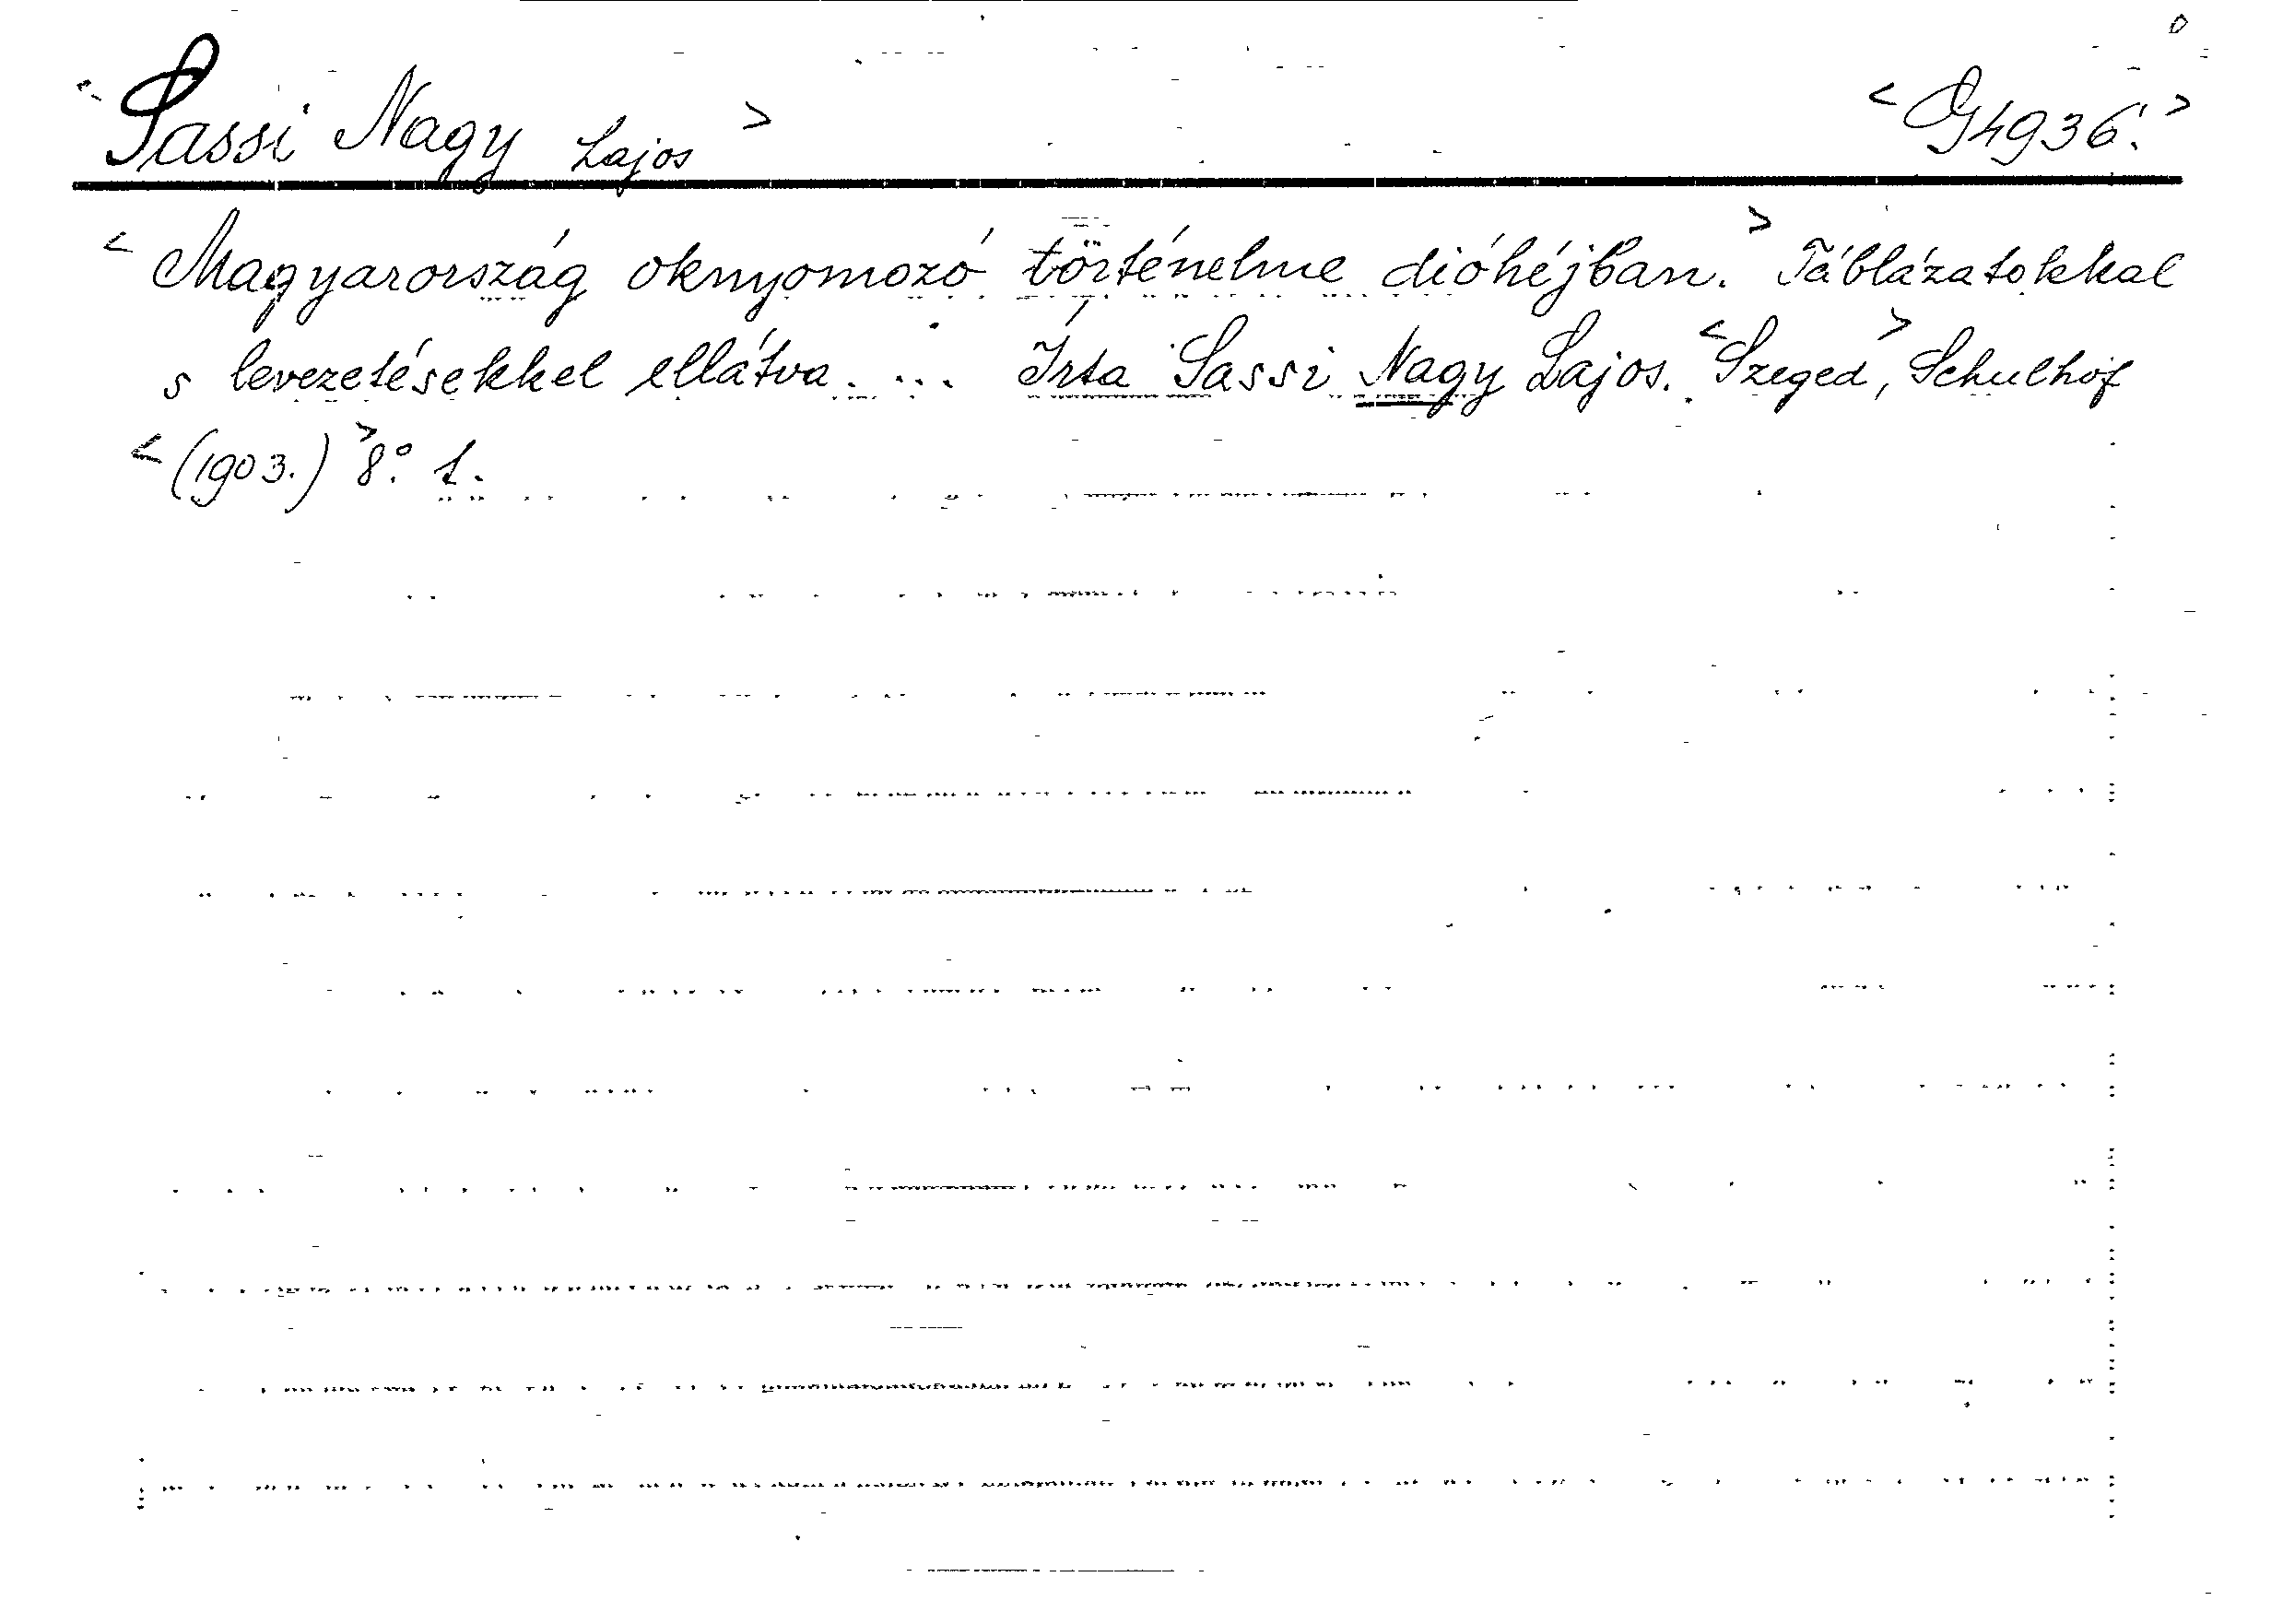 <Sassi Nagy Lajos> <G4936.>
<Magyarország oknyomozó történelme dióhéjban.> Táblázatokkal
s levezetésekkel ellátva. ... Írta Sassi Nagy Lajos. <Szeged>, Schulhof
<(1903.)> 8° 1.